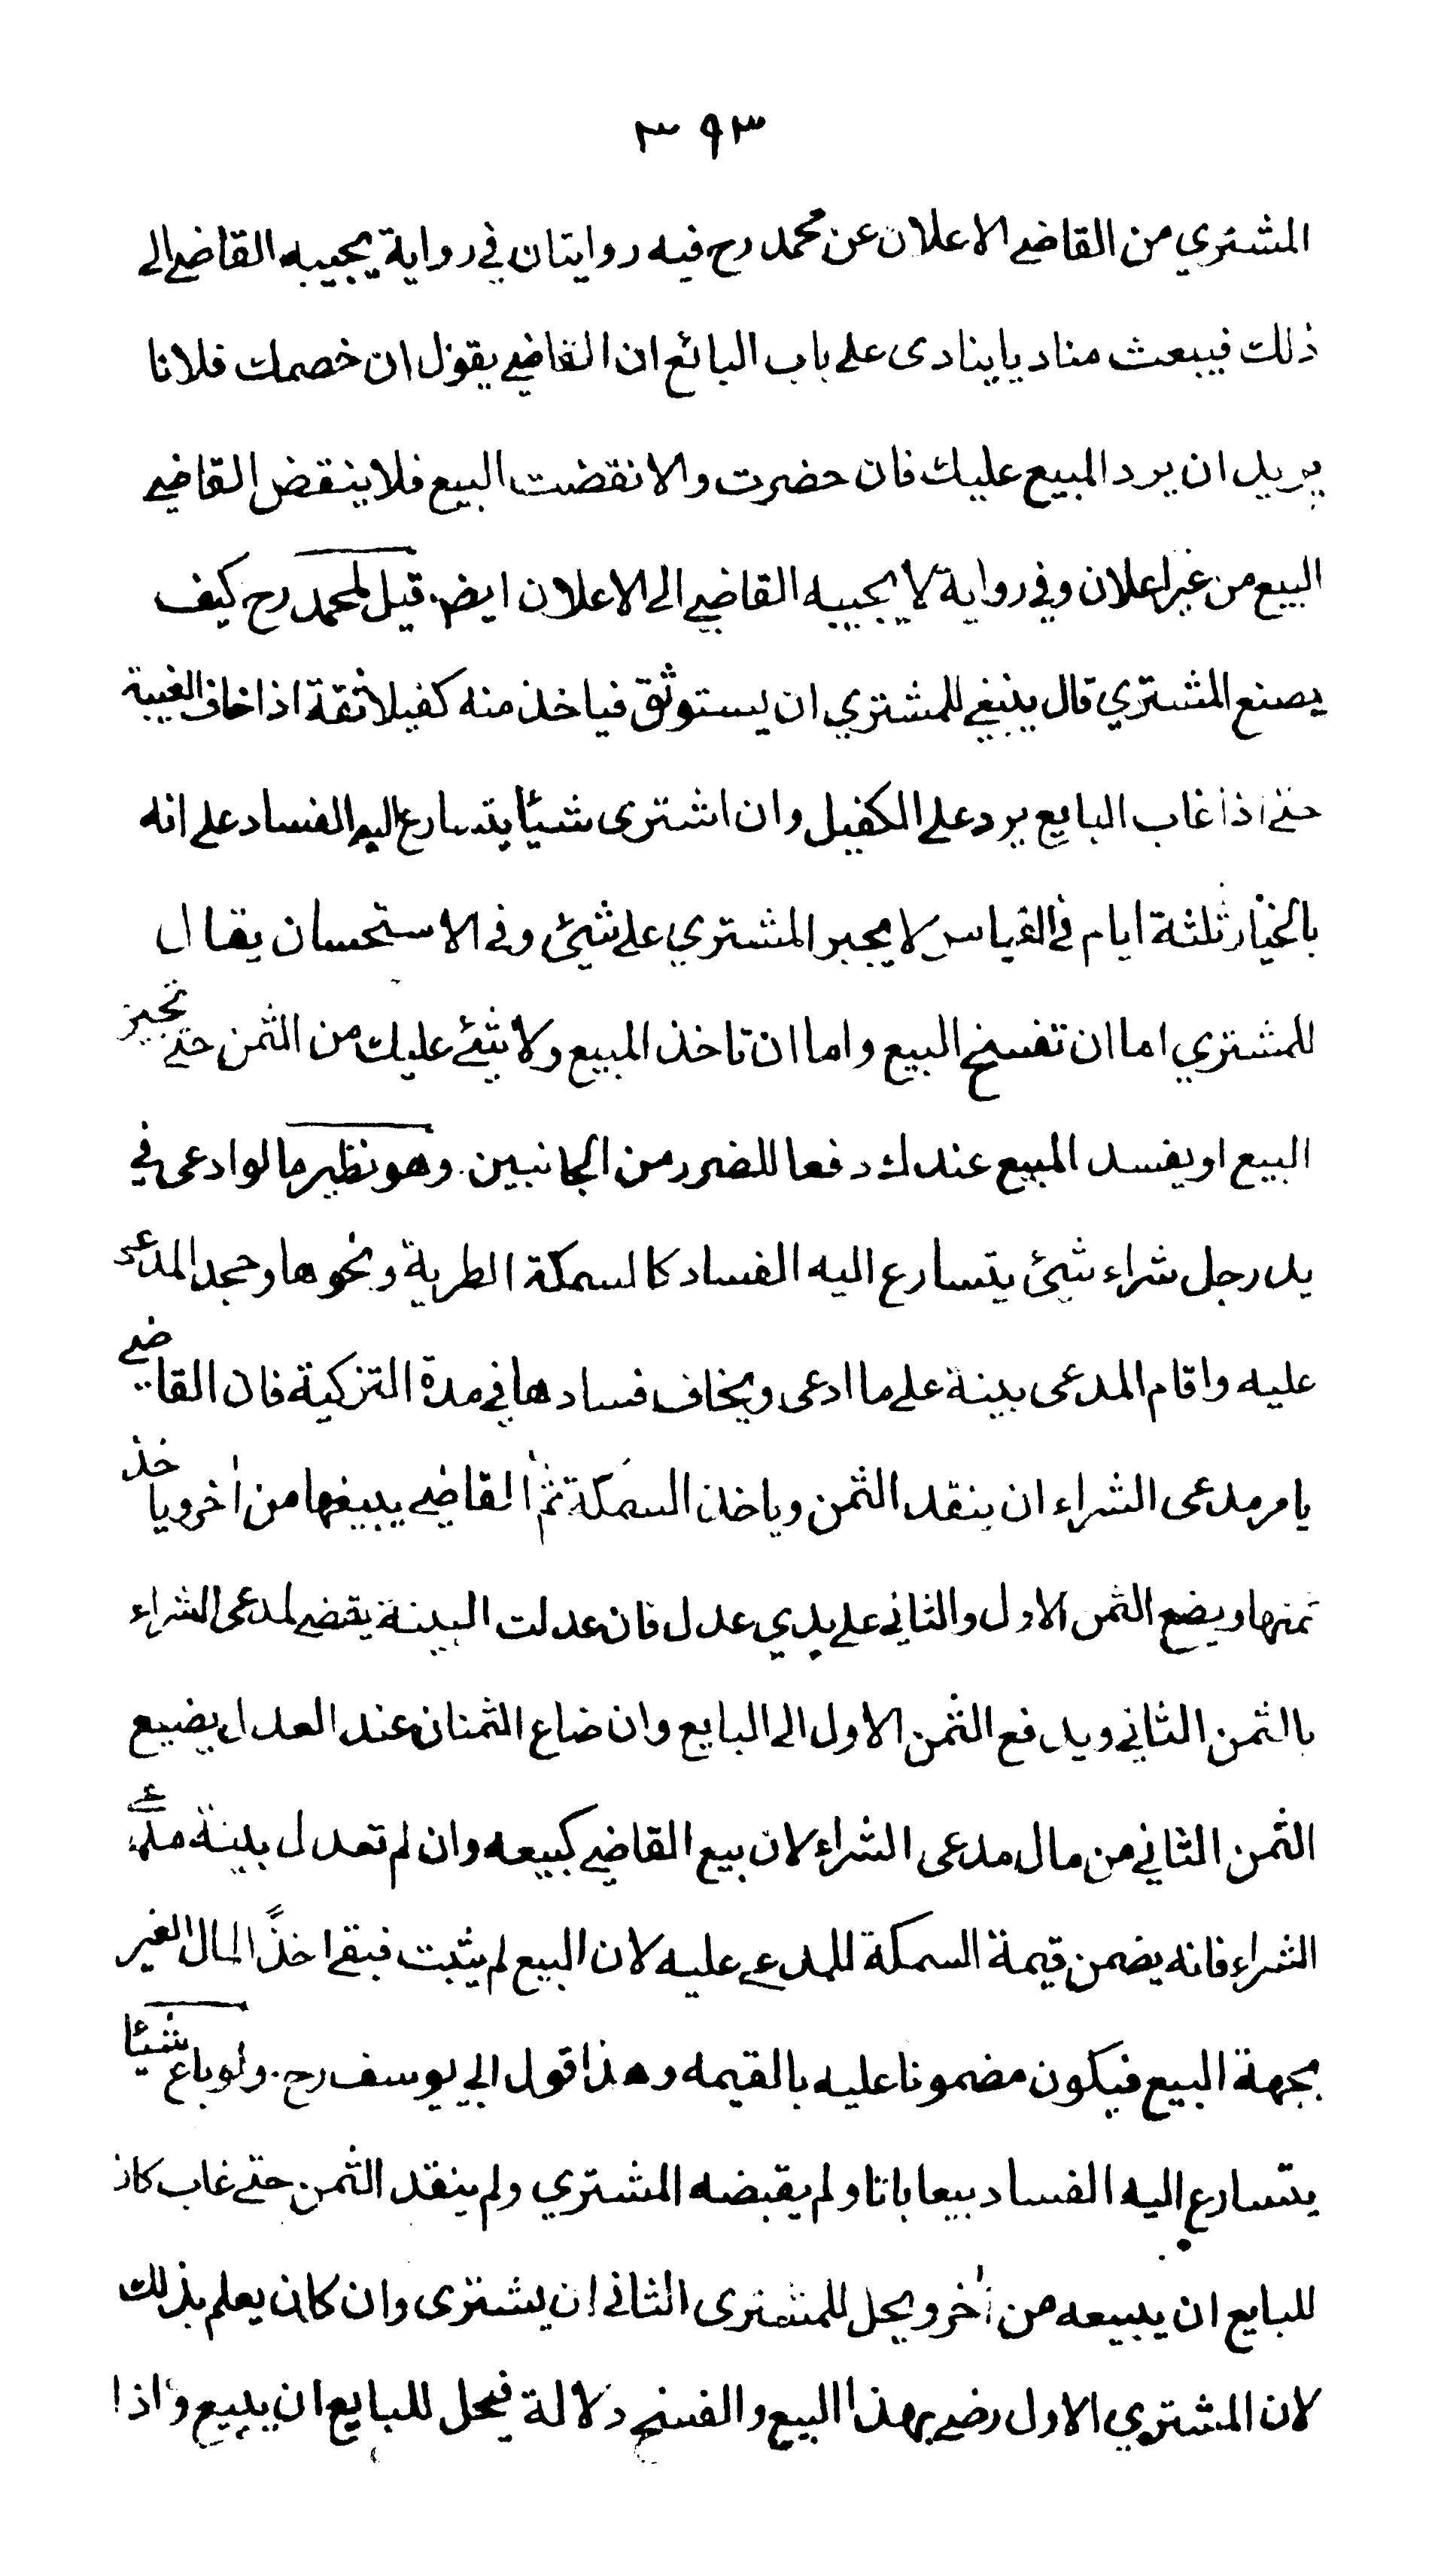 ٣٩٣
المشتري من القاضي الاعلان عن محمد رح فيه روايتان في رواية يجيبه القاضي الى
ذلك فيبعث مناديا ينادى على باب البائع ان القاضي يقول ان خصمك فلانا
يريد ان يرد المبيع عليك فان حضرت والا نقضت البيع فلا ينقض القاضي
البيع من غير اعلان وفي رواية لا يجيبه القاضي الى الاعلان ايض. قيل لمحمد رح كيف
يصنع المشتري قال ينبغي للمشتري ان يستوثق فياخذ منه كفيلا ثقة اذا خاف الغيبة
حتى اذا غاب البايع يرد على الكفيل وان اشترى شيئا يتسارع اليه الفساد على انه
بالخيار ثلثة ايام في القياس لا يجبر المشتري على شيئ وفي الاستحسان يقال
للمشتري اما ان تفسخ البيع واما ان تاخذ المبيع ولا شئ عليك من الثمن حتى تجيز
البيع او يفسد المبيع عندك دفعا للضرر من الجانبين. وهو نظير ما لو ادعى في
يد رجل شراء شيئ يتسارع اليه الفساد كالسمكة الطرية ونحوها وجحد المدعى
عليه واقام المدعى بينة على ما ادعى ويخاف فسادها في مدة التزكية فان القاضي
يامر مدعى الشراء ان ينقد الثمن وياخذ السمكة ثم القاضي يبيعها من اخر وياخذ
ثمنها ويضع الثمن الاول والثاني على يدي عدل فان عدلت البينة يقضي لمدعى الشراء
بالثمن الثاني ويدفع الثمن الاول الى البايع وان ضاع الثمنان عند العدل يضيع
الثمن الثاني من مال مدعى الشراء لان بيع القاضي كبيعه وان لم تعدل بينة مدعي
الشراء فانه يضمن قيمة السمكة للمدعى عليه لان البيع لم يثبت فبقي اخذا لمال الغير
بجهة البيع فيكون مضمونا عليه بالقيمه وهذا قول ابي يوسف رح. ولو باع شيئا
يتسارع اليه الفساد بيعا باتا ولم يقبضه المشتري ولم ينقد الثمن حتى غاب كان
للبايع ان يبيعه من اخر ويحل للمشترى الثاني ان يشترى وان كان يعلم بذلك
لان المشتري الاول رضي بهذا البيع والفسخ دلالة فيحل للبايع ان يبيع واذا